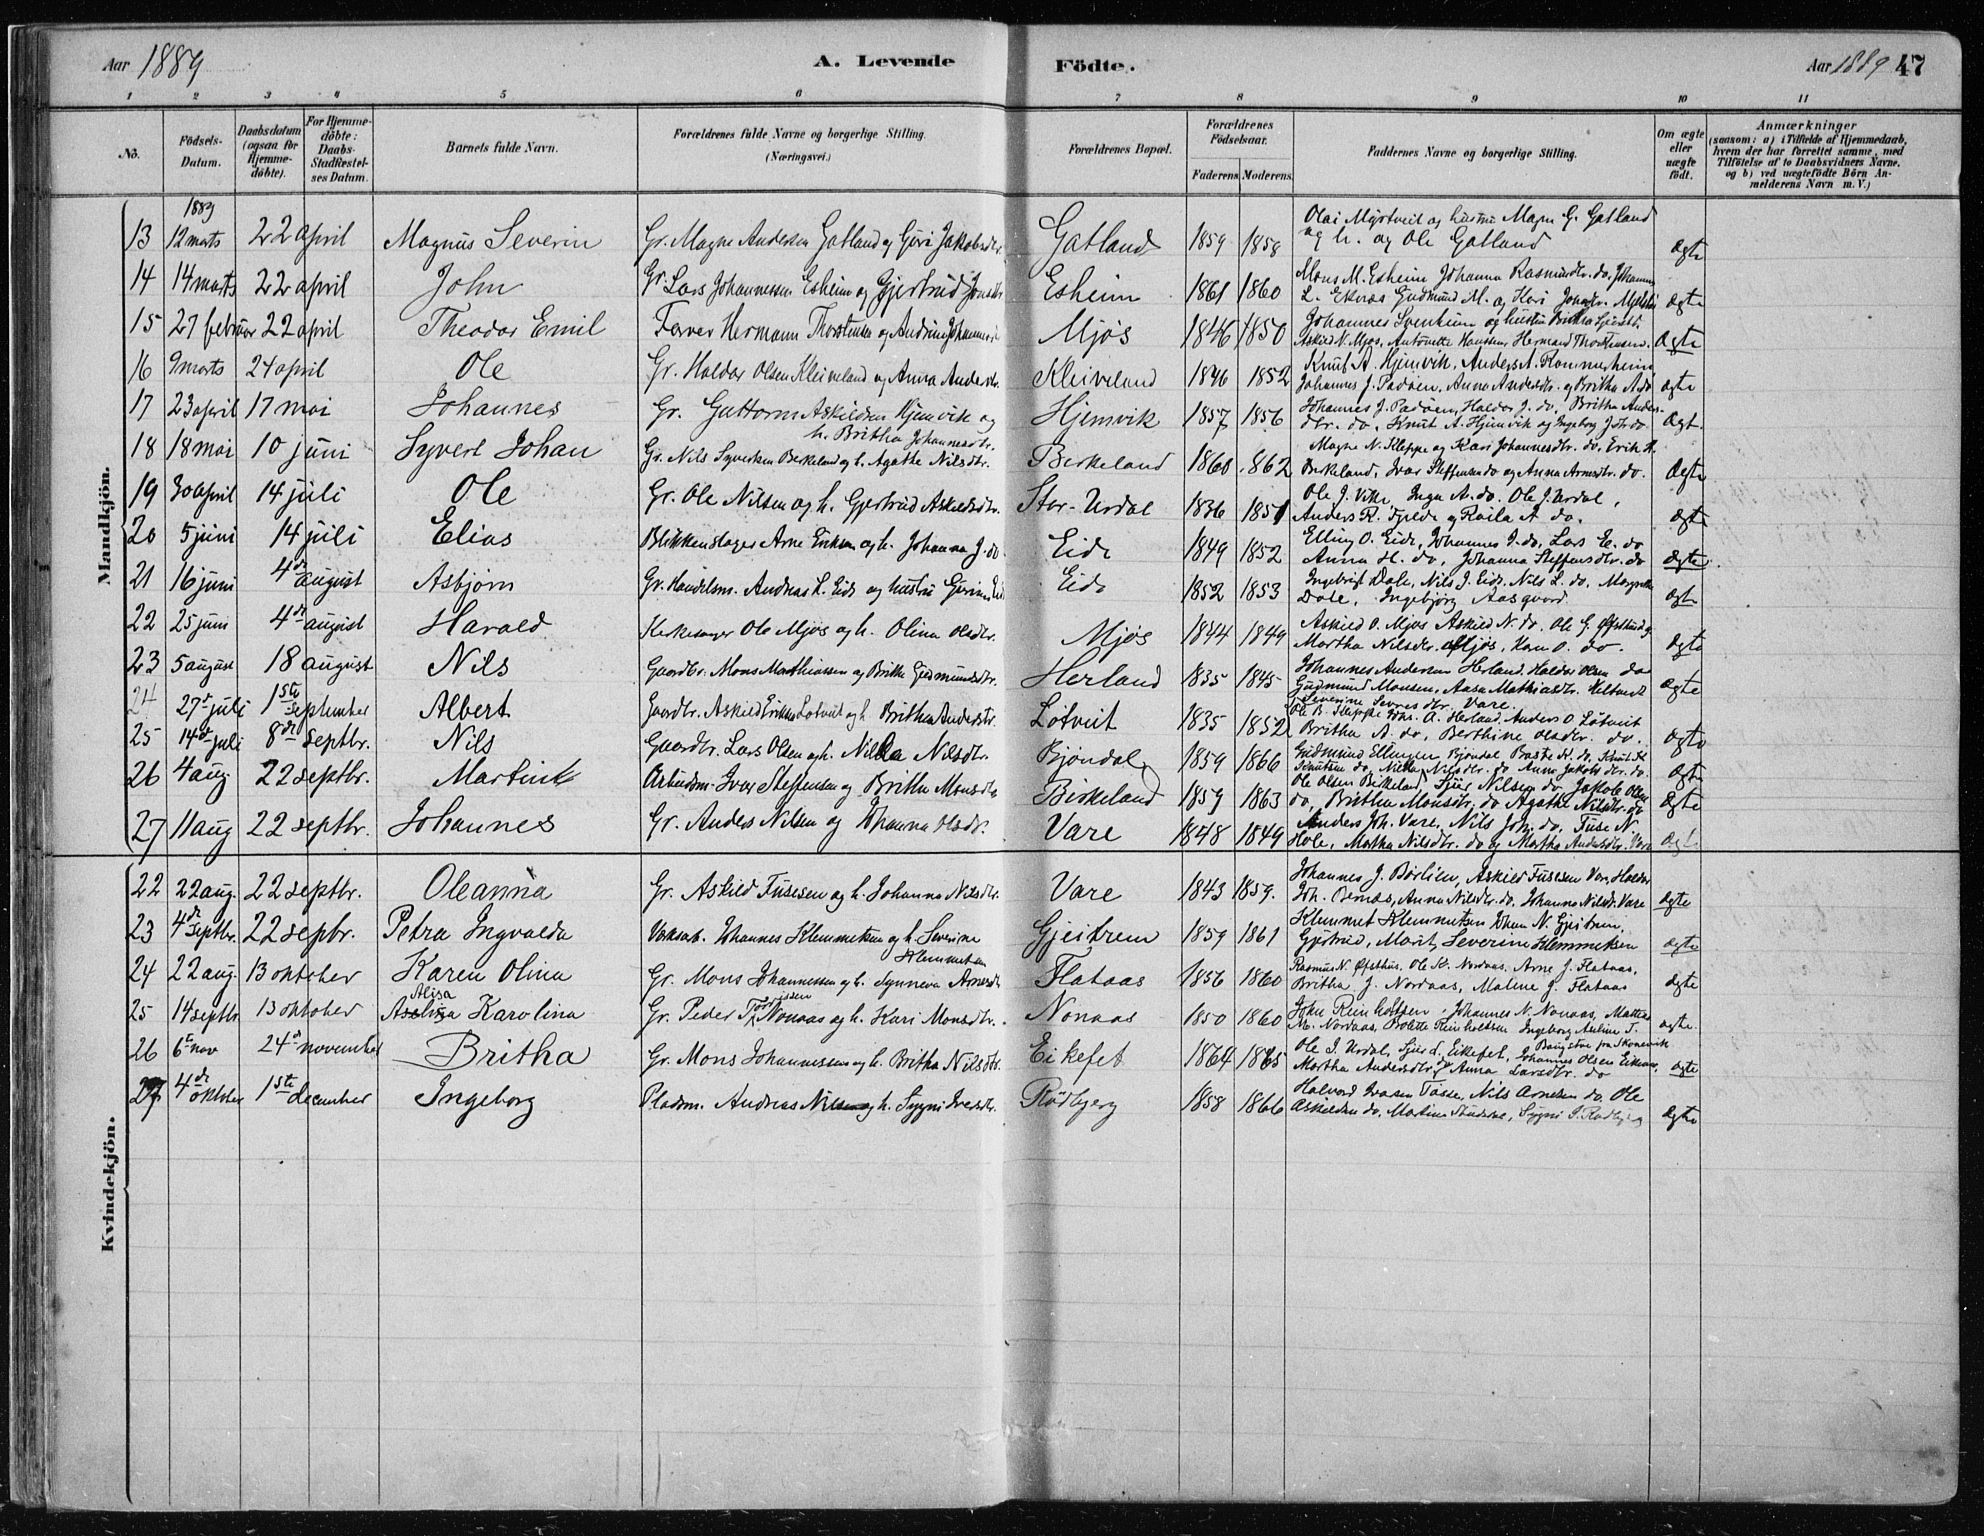 Aar 1889 A. Levende Födte. Aar 1889 47
1 2 3 4 5 6 7 8 9 10 11
No. Födsels-Datum. Daabsdatum (ogsaa for Hjemme-döbte). For Hjemme-döbte: Daabs-Stadfæstel-ses Datum. Barnets fulde Navn. Forældrenes fulde Navne og borgerlige Stilling. (Næringsvei.) Forældrenes Bopæl. Forældrenes Födselsaar. Faderens. Moderens. Faddernes Navne og borgerlige Stilling. Om ægte eller uægte födt. Anmærkninger (saasom: a) i Tilfælde af Hjemmedaab, hvem der har forrettet samme, med Tilföielse af to Daabsvidners Navne, og b) ved uægtefödte Börn An-melderens Navn m. V.)
Mandkjön.
1889
13 12 marts 22 april Magnus Severin Gr. Magne Andersen Gatland og Guri Jakobsdtr. Gatland 1859 1858 Olai Mystveit og hustru Magn G. Gatland og h. og Ole Gatland ægte
14 14 marts 22 april John Gr. Lars Johannessen Esheim og Gjertrud Jonsdtr Esheim 1861 1860 Mons M. Esheim Johanna Rasmusdtr. do, Johannes L. Eknæs Gudmund M. og Kari Jonsdtr. ægte
15 27 februar 22 april Theodor Emil Farver Hermann Thorstensen og Mjøs 1846 1850 Johannes Svenheim og hustru Britha Askild N. Mjøs, Antonette Hansen Hermand Thorstensen. Ægte
16 9 marts 24 april Ole Gr. Haldor Olsen Kleiveland og Anna Andersdtr. Kleiveland 1846 1852 Knut A. Hjemvik, Anders A. Rommarheim Johannes J. Padøen, Anna Andersdtr. og Britha A. do ægte
17 23 april 17 mai Johannes Gr. Guttorm Askildsen Hjemvik og h. Britha Johannesdtr. Hjemvik 1857 1856 Johannes J. Padøen, Haldor J. do, Britha Anders-dtr. do, Knut A. Hjemvik og Ingeborg Joh. do Ægt.
18 18 mai 10 juni Syvert Johan Gr. Nils Syversen Birkeland og h. Agathe Nilsdtr. Birkeland 1860 1862 Magne N. Kleppe og Kari Johannesdtr. do, Erik H. Birkeland, Ivar Steffensen do og Anna Arnsdtr. do. Ægte
19 30 april 14 juli Ole Gr. Ole Nilsen og h. Gjertrud Askildsdtr. Stor-Urdal 1836 1851 Ole J. Vike, Inga A. do. Ole J. Urdal, Anders R. og A do. ægte
20 5 juni 14 juli Elias Blikkenslager Arne Eriksen og h. Johanna J. do Eide 1849 1852 Elling O. Eide, Johannes J. do, Lars E. do Anna H. do, Johanna Steffensdtr. do ægte
21 16 juni 4de august Asbjørn Gr. Handelsm. Andreas L. Eide og hustru Eide 1852 1853 Ingebrigt Dale, Nils J. Eide, Nils L. do, Margrethe Dale, Ingebjørg Aasgaard. ægte
22 25 juni 4de august Harald Kirkesanger Ole Mjøs og h. Olina Olsdtr. Mjøs 1844 1849 Askild O. Mjøs Askild N. do. Ole G. Øfsthus og Martha Nilsdtr. Mjøs, O. do. ægte
23 5 august 18 august Nils Gaardbr. Mons Mathiassen og Britha Gudmundsdtr. Herland 1835 1845 Johannes Andersen Herland Haldor Olsen do Gudmund Monsen, Aasa Mathiasdtr. ægte
24 27de juli 1ste september Albert Gaardbr. Askild Eriksen Løtveit og h. Britha Andersdtr. Løtveit 1835 1852 Severine Vare. Ole B. Kleppe Joh. A. Herland, Anders O. Løtveit Britha A. do, Berthine Olsdtr. do. ægte
25 14de juli 8de septbr. Nils Gaardbr. Lars Olsen og h. Nilla Nilsdtr. Bjøndal 1859 1866 Gudmund Ellingsen Bjøndal K. do, Knut do, Nilla Nilsdtr. do Anna Jakobsdtr. do. ægte
26 4 aug. 22 septbr. Martin Arbeidsm. Ivar Steffensen og Britha Monsdtr Birkeland 1859 1863 Ole Olsen Birkeland, Sjur Nilsen do, Jakob Olsen do, Britha Monsdtr. do Agatha Nilsdtr. do Ægte
27 11 aug 22 septbr. Johannes Gr. Anders Nilsen og Johanna Olsdr. Vare 1848 1849 Anders Joh. Vare, Nils Joh. do, Fuse N. Hole, Martha Nilsdtr. do og Martha Andersdtr. Vare Ægt.
Kvindekjön.
22 22 aug. 22 septbr. Oleanna Gr. Askild Fusesen og h. Johanna Nilsdtr. Vare 1843 1859. Johannes J. Børlien, Askild Fusesen Vare, Haldor Joh. Bernæs, Anna Nilsdtr. do. Johanna Nilsd. Vare ægte
23 4de septbr. 22 sepbr. Petra Ingvalda Johannes Klemmetsen og h. Severine Klemmetsen Gjeitrem 1859 1861 Klemmet Klemmetsen Johan N. Gjeitrem, Gjertrud, Marit, Severine Klemmetsen ægte
24 22 aug. 13 oktober Karen Olina Gr. Mons Johannessen og h. Synneva Arnesdtr Flataas 1856 1860 Rasmus N. Øfsthus, Ole K. Nordaas, Arne J. Flataas, Britha J. Nordaas, Malene J. Flataas ægte
25 14 septbr. 13 oktober Alisa Karolina Gr. Peder Nonaas og h. Kari Monsdtr. Nonaas 1850 1860 John Reinholtsen, Johannes N. Nonaas, Mathias M. Nordaas, Bolette Reinholtsen Ingeborg Auline T. ægte.
26 6te nov 24de november Britha Gr. Mons Johannessen og h. Britha Nilsdtr. Eikefet 1864 1865 Ole J. Urdal, Sjur d. Eikefet, Johannes Olsen Martha Andersdtr. do Anna Larsdtr. do ægte
27 4de oktober 1ste december Ingeborg Pladsm. Andreas Nilsen og h. Sygni Iversdtr. Rødbjerg 1858 1866 Halvard Iversen Tosse, Nils Arnesen do, Ole Askildsen do, Sygni I. Rødbjerg ægte